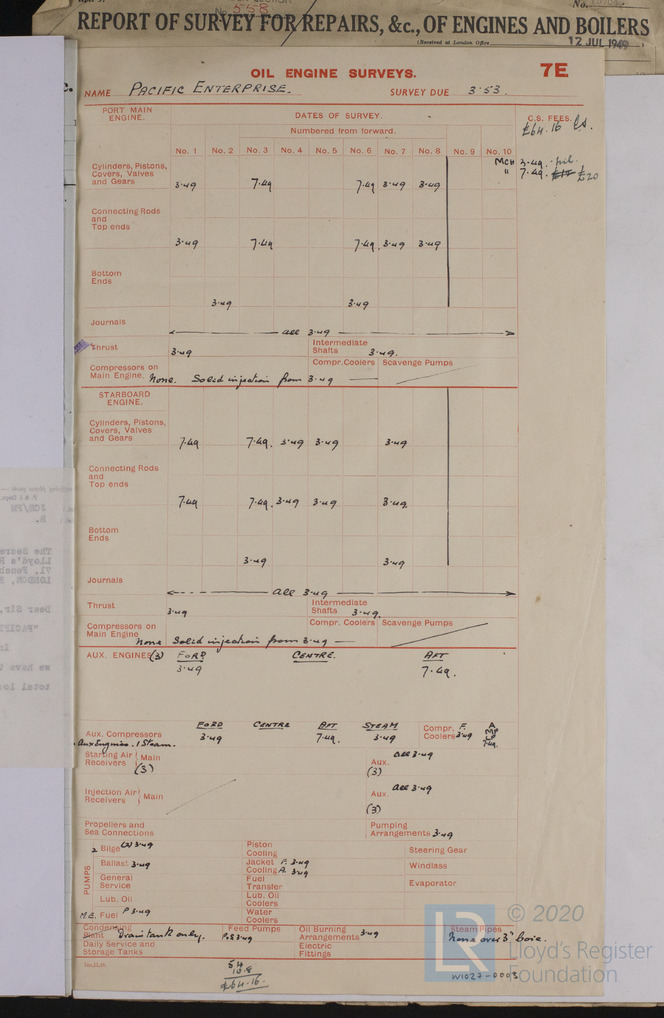 No. 558
REPORT OF SURVEY FOR REPAIRS, &c., OF ENGINES AND BOILERS
(Received at London Office
12 JUL 1949
OIL ENGINE SURVEYS.
7E
NAME PACIFIC ENTERPRISE. SURVEY DUE 3·53.
PORT MAIN ENGINE. DATES OF SURVEY. C.S. FEES.
£64.16
Numbered from forward.
No. 1 No. 2 No. 3 No. 4 No. 5 No. 6 No. 7 No. 8 No. 9 No. 10
Mch 3.49. nil.
" 7.49. £20
Cylinders, Pistons, Covers, Valves and Gears 3·49 7.49 7.49 3·49 3·49
Connecting Rods and Top ends 3·49 7.49 7.49 3·49 3·49
Bottom Ends 3·49 3·49
Journals all 3·49
Thrust 3·49 Intermediate Shafts 3·49.
Compressors on Main Engine. None. Solid injection from 3·49 Compr. Coolers Scavenge Pumps
STARBOARD ENGINE.
Cylinders, Pistons, Covers, Valves and Gears 7.49 7.49. 3·49 3·49 3·49
Connecting Rods and Top ends 7.49 7.49. 3·49 3·49 3·49
Bottom Ends 3·49 3·49
Journals all 3·49
Thrust 3·49 Intermediate Shafts 3·49.
Compressors on Main Engine None Solid injection from 3·49 Compr. Coolers Scavenge Pumps
AUX. ENGINES (3) FORD CENTRE. AFT
3·49 7.49.
FORD CENTRE AFT STEAM
Aux. Compressors 3·49 7.49. 3·49 Compr. Coolers F. 3·49
Aux Engines. 1 Steam.
Starting Air Receivers Main (3) Aux. (3) all 3·49
Injection Air Receivers Main Aux. (3) all 3·49
Propellers and Sea Connections Pumping Arrangements 3·49
PUMPS
2 Bilge (2) 3·49 Piston Cooling Steering Gear
Ballast 3·49 Jacket Cooling F. 3·49 A. 3·49 Windlass
General Service Fuel Transfer Evaporator
Lub. Oil Lub. Oil Coolers
M.E. Fuel P 3·49 Water Coolers
Condensing Plant Drain tank only. Feed Pumps P&S 3·49 Oil Burning Arrangements 3·49 Steam Pipes None over 3" bore.
Daily Service and Storage Tanks Electric Fittings
54
10.8
£64.16.
W1027-0003
© 2020
Lloyd's Register
Foundation